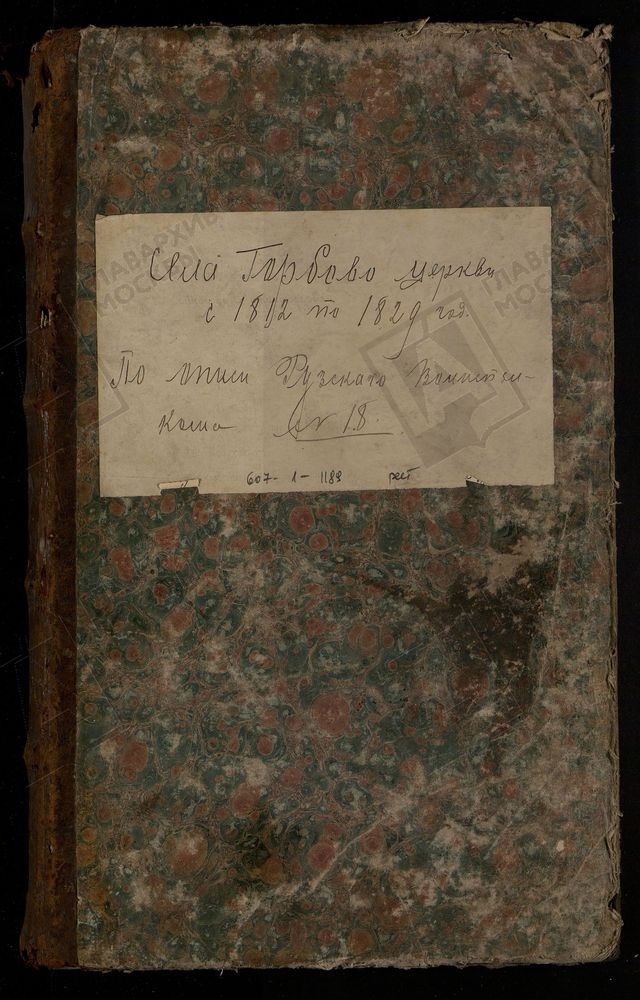 Села Горбово церкви
с 1812 по 1829 год.
По описи Рузскаго Воинскаго
№ 18.
607-1-1189 рест
ГЛАВАРХИВ
МОСКВЫ
ГЛАВАРХИВ
МОСКВЫ